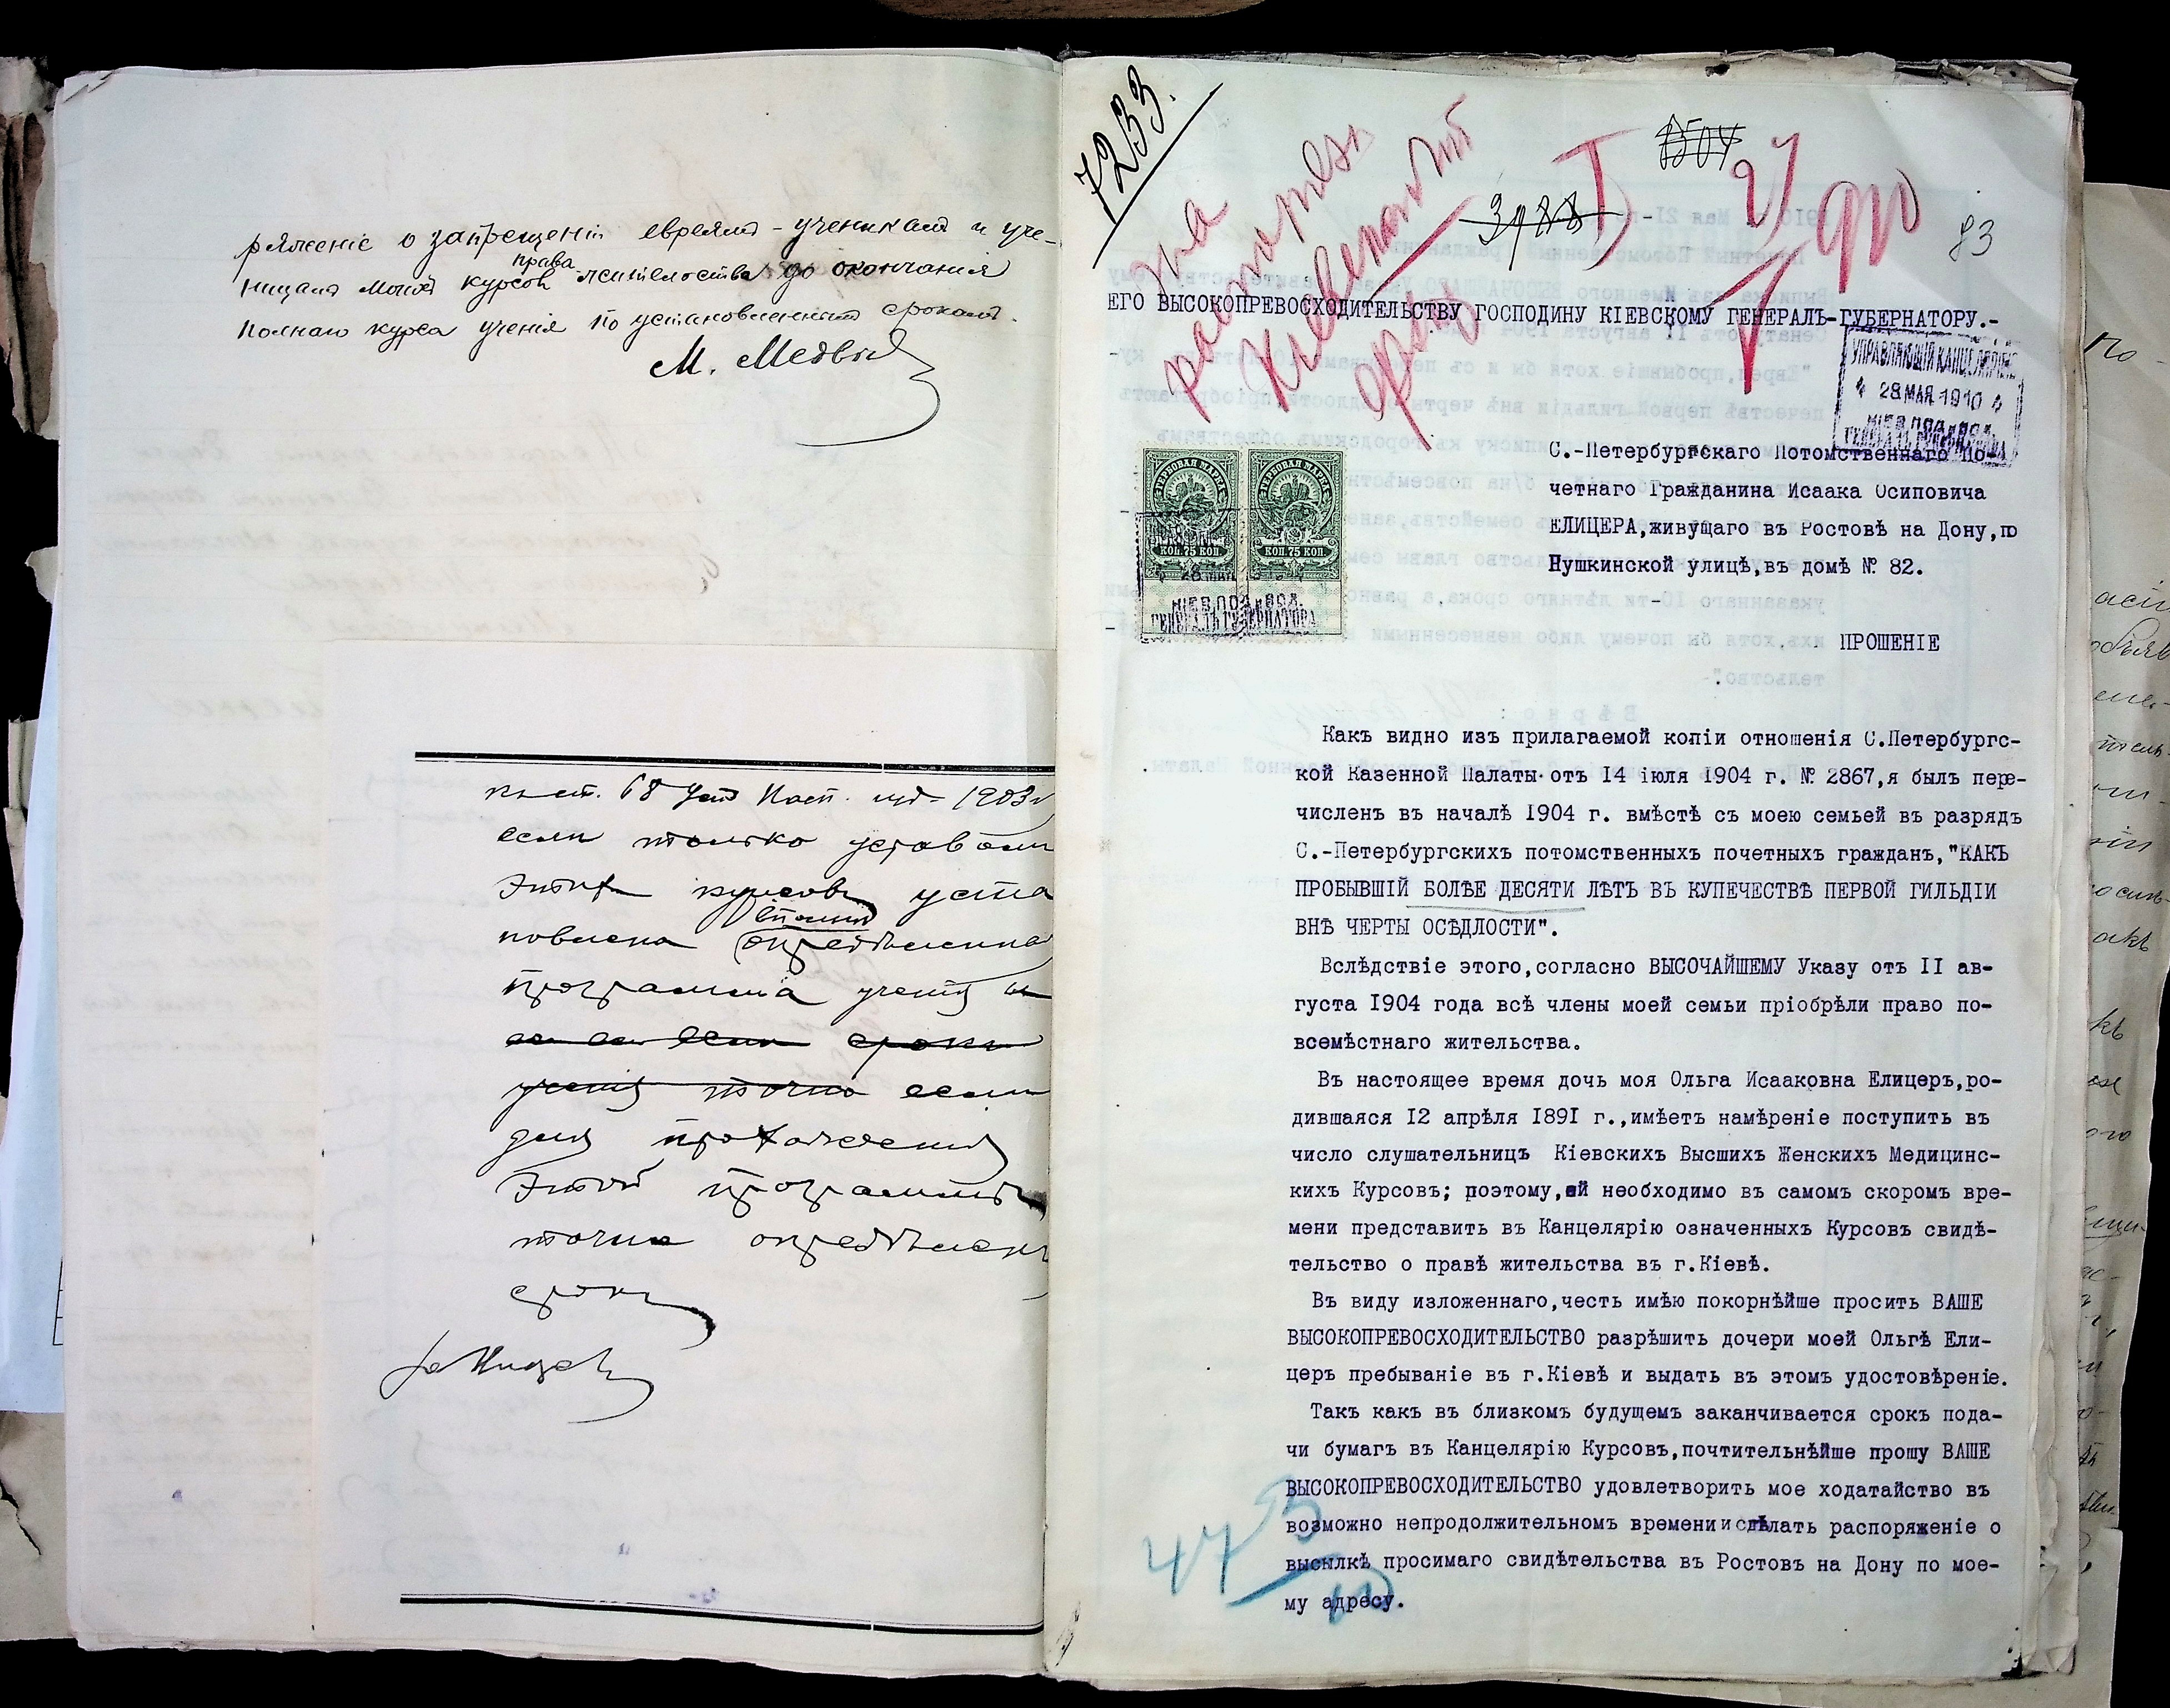 ряженіе о запрещеніи евреямъ-ученикамъ и уче-
ницамъ моихъ курсовъ права жительства до окончанія
полнаго курса ученія по установленнымъ срокамъ.
М. Медвѣд
ст. 68 Уст. Пасп. изд. 1903
если только уставами
этихъ курсовъ уста
новлена вполнѣ опредѣленна
программа
если сроки
точно если
для прохожденія
этой программы
точно опредѣлены
сроки
7233.
3988
I
27
910
83
на
разсмотр
Кіевскому
ЕГО ВЫСОКОПРЕВОСХОДИТЕЛЬСТВУ ГОСПОДИНУ КІЕВСКОМУ ГЕНЕРАЛЪ-ГУБЕРНАТОРУ.-
УПРАВЛЯЮЩІЙ КАНЦЕЛЯРІЕЮ
28 МАЯ 1910
КІЕВ. ПОД. и ВОЛ.
ГЕНЕРАЛЪ ГУБЕРНАТОРА
С.-Петербургскаго Потомственнаго По-
четнаго Гражданина Исаака Осиповича
ЕЛИЦЕРА,живущаго въ Ростовѣ на Дону,по
Пушкинской улицѣ,въ домѣ № 82.
ГЕРБОВАЯ МАРКА
КОП. 75 КОП
ГЕРБОВАЯ МАРКА
КОП. 75 КОП
КІЕВ. ПОД. и ВОЛ.
ГЕНЕРАЛЪ ГУБЕРНАТОРА
ПРОШЕНІЕ
Какъ видно изъ прилагаемой копіи отношенія С.Петербургс-
кой Казенной Палаты отъ 14 іюля 1904 г. № 2867,я былъ пере-
численъ въ началѣ 1904 г. вмѣстѣ съ моею семьей въ разрядъ
С.-Петербургскихъ потомственныхъ почетныхъ гражданъ,"КАКЪ
ПРОБЫВШІЙ БОЛѢЕ ДЕСЯТИ ЛѢТЪ ВЪ КУПЕЧЕСТВѢ ПЕРВОЙ ГИЛЬДІИ
ВНѢ ЧЕРТЫ ОСѢДЛОСТИ".
Вслѣдствіе этого,согласно ВЫСОЧАЙШЕМУ Указу отъ II ав-
густа 1904 года всѣ члены моей семьи пріобрѣли право по-
всемѣстнаго жительства.
Въ настоящее время дочь моя Ольга Исааковна Елицеръ,ро-
дившаяся 12 апрѣля 1891 г.,имѣетъ намѣреніе поступить въ
число слушательницъ Кіевскихъ Высшихъ Женскихъ Медицинс-
кихъ Курсовъ; поэтому,ей необходимо въ самомъ скоромъ вре-
мени представить въ Канцелярію означенныхъ Курсовъ свидѣ-
тельство о правѣ жительства въ г.Кіевѣ.
Въ виду изложеннаго,честь имѣю покорнѣйше просить ВАШЕ
ВЫСОКОПРЕВОСХОДИТЕЛЬСТВО разрѣшить дочери моей Ольгѣ Ели-
церъ пребываніе въ г.Кіевѣ и выдать въ этомъ удостовѣреніе.
Такъ какъ въ близкомъ будущемъ заканчивается срокъ пода-
чи бумагъ въ Канцелярію Курсовъ,почтительнѣйше прошу ВАШЕ
ВЫСОКОПРЕВОСХОДИТЕЛЬСТВО удовлетворить мое ходатайство въ
возможно непродолжительномъ времени и сдѣлать распоряженіе о
высылкѣ просимаго свидѣтельства въ Ростовъ на Дону по мое-
му адресу.
47